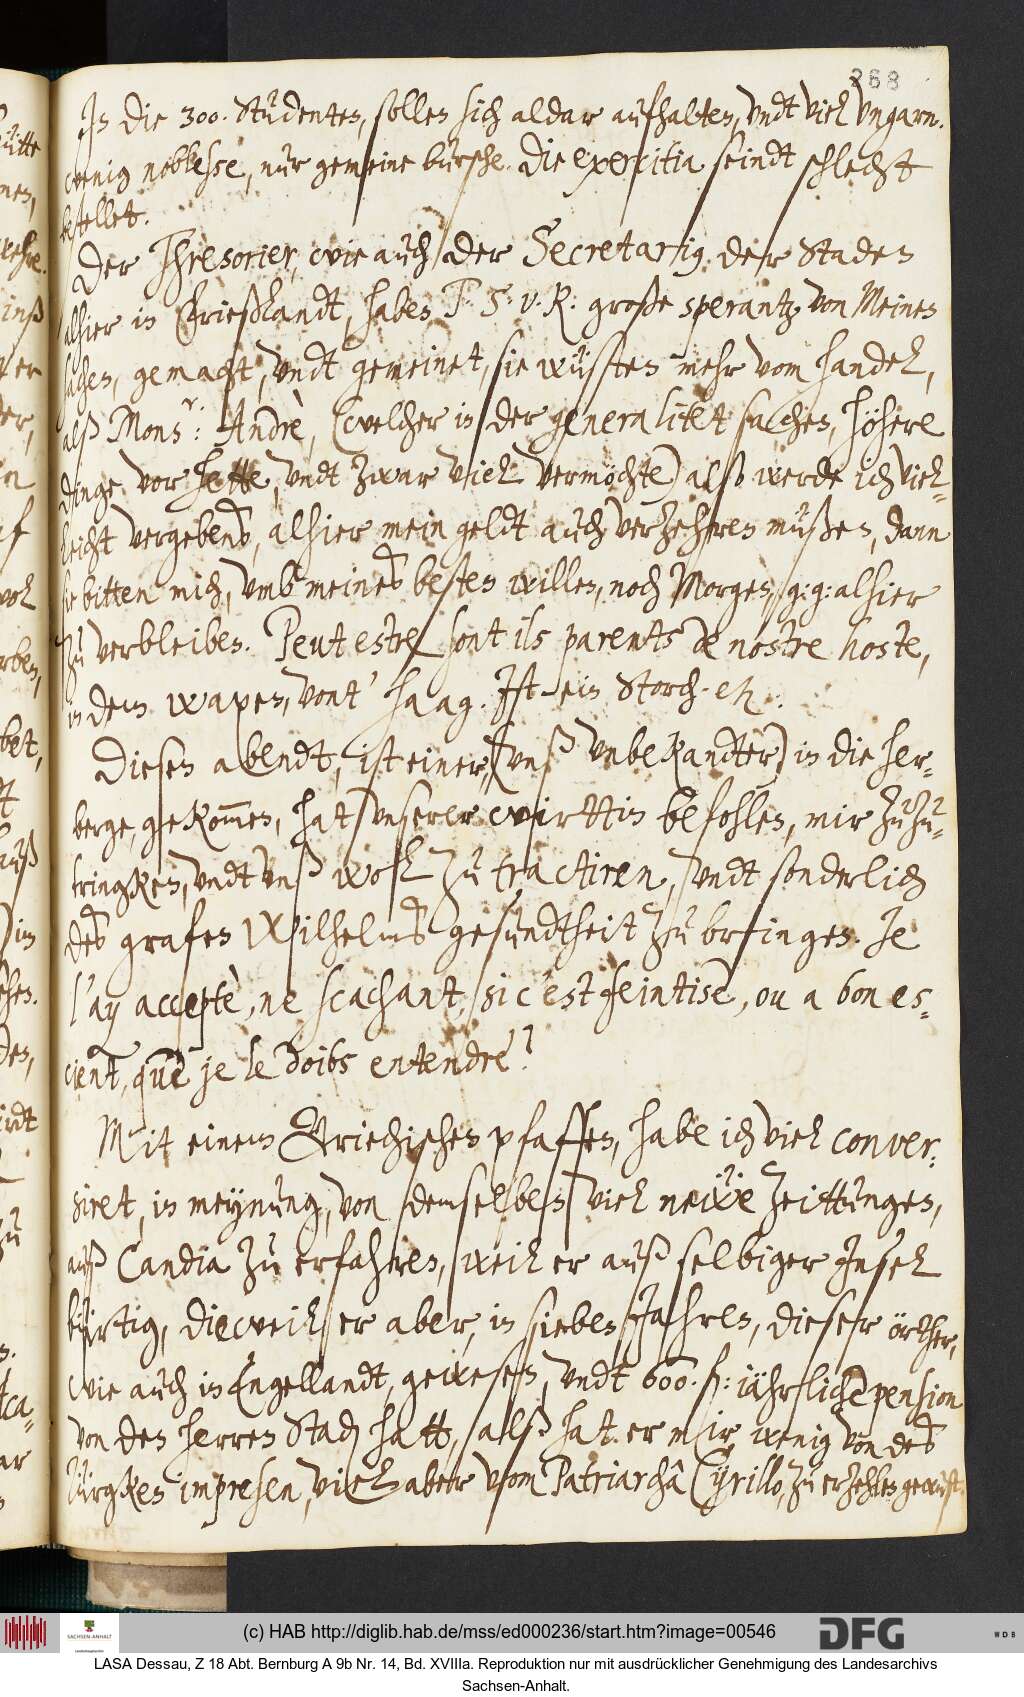 268
In die 300. Studenten, sollen sich aldar aufhalten, vndt viel Vngarn.
wenig noblesse, nur gemeine bursche. Die exercitia seindt schlecht
bestellet.
Der Thresorier, wie auch der Secretarius der Staden
alhier in Frießlandt, haben F. G. v. R: große sperantz von Meinen
sachen, gemacht, vndt gemeinet, sie wüsten mehr vom handel,
alß Mons.r: Andrè, (welcher in der generalitet sachen, höhere
dinge vor hette, vndt zwar viel vermöchte) alß werde ich viel-
leicht vergebens, alhier mein geldt auch verzehren müßen, dann
sie bitten mich, vmb meines besten willen, noch Morgen, g: g: alhier
zu verbleiben. Peut estre sont ils parents de nostre hoste,
in dem wapen, vont' haag. Ist ein Storch. eh.
Diesen abendt, ist einer, (vnß vnbekandter) in die her-
berge, gekom̅en, hat vnserer wirttin befohlen, mir zuzu-
tringken, vndt vnß wohl zu tractiren, vndt sonderlich
des grafen Wilhelms gesundtheit zu bringen. Je
l'ay acceptè, ne scachant, si c'est feintise, ou a bon es-
cient, que je le doibs entendre?
Mit einem Griechischen pfaffen, habe ich viel conver-
siret, in meynung, von demselben viel neẅe Zeittungen,
auß Candia zu erfahren, weil er auß selbiger Insel
bürtig, dieweil er aber, in sieben Jahren, dieser örther,
wie auch in Engellandt, gewesen, vndt 600. fl: iährliche pension
von den herren Stadẽ hatt, alß hat er mir wenig von des
Türgken impresen, viel aber vom Patriarchâ Cyrillo, zu erzehlen gewust.
(c) HAB http://diglib.hab.de/mss/ed000236/start.htm?image=00546
DFG
WDB
SACHSEN-ANHALT
LASA Dessau, Z 18 Abt. Bernburg A 9b Nr. 14, Bd. XVIIIa. Reproduktion nur mit ausdrücklicher Genehmigung des Landesarchivs
Sachsen-Anhalt.